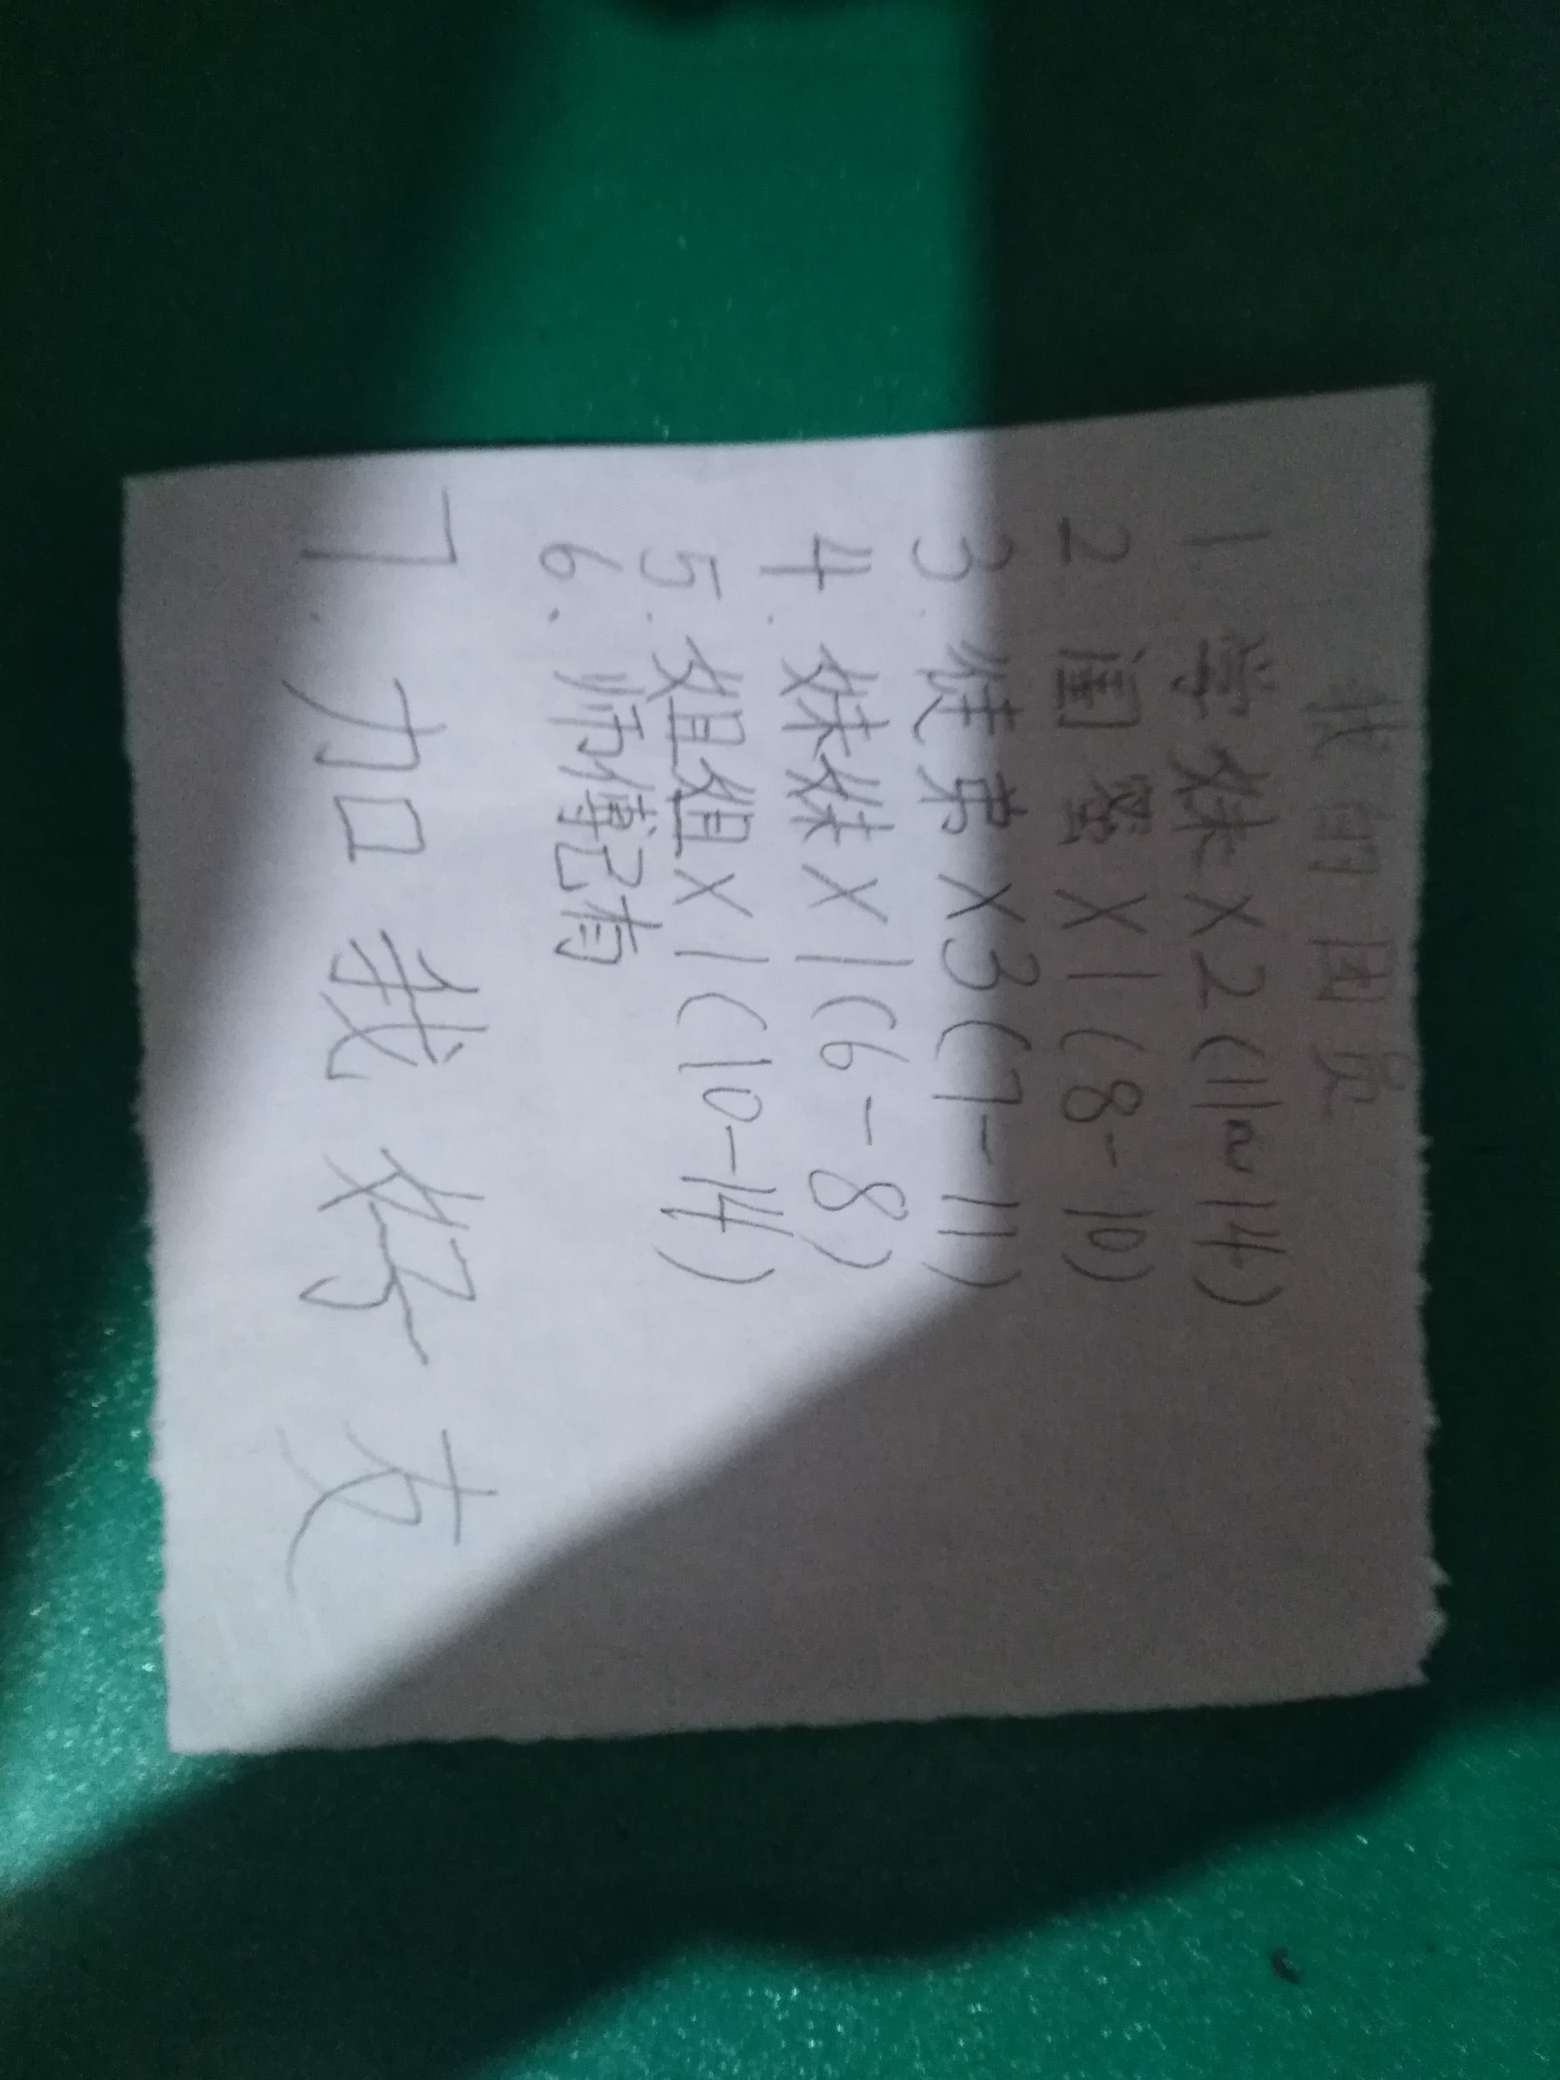 我的团员
1 学妹X2(11~14)
2 闺蜜X1(8-10)
3.徒弟X3(7-11)
4.妹妹X1(6-8)
5.姐姐X1(10-14)
6、师傅已有
7.加我好友